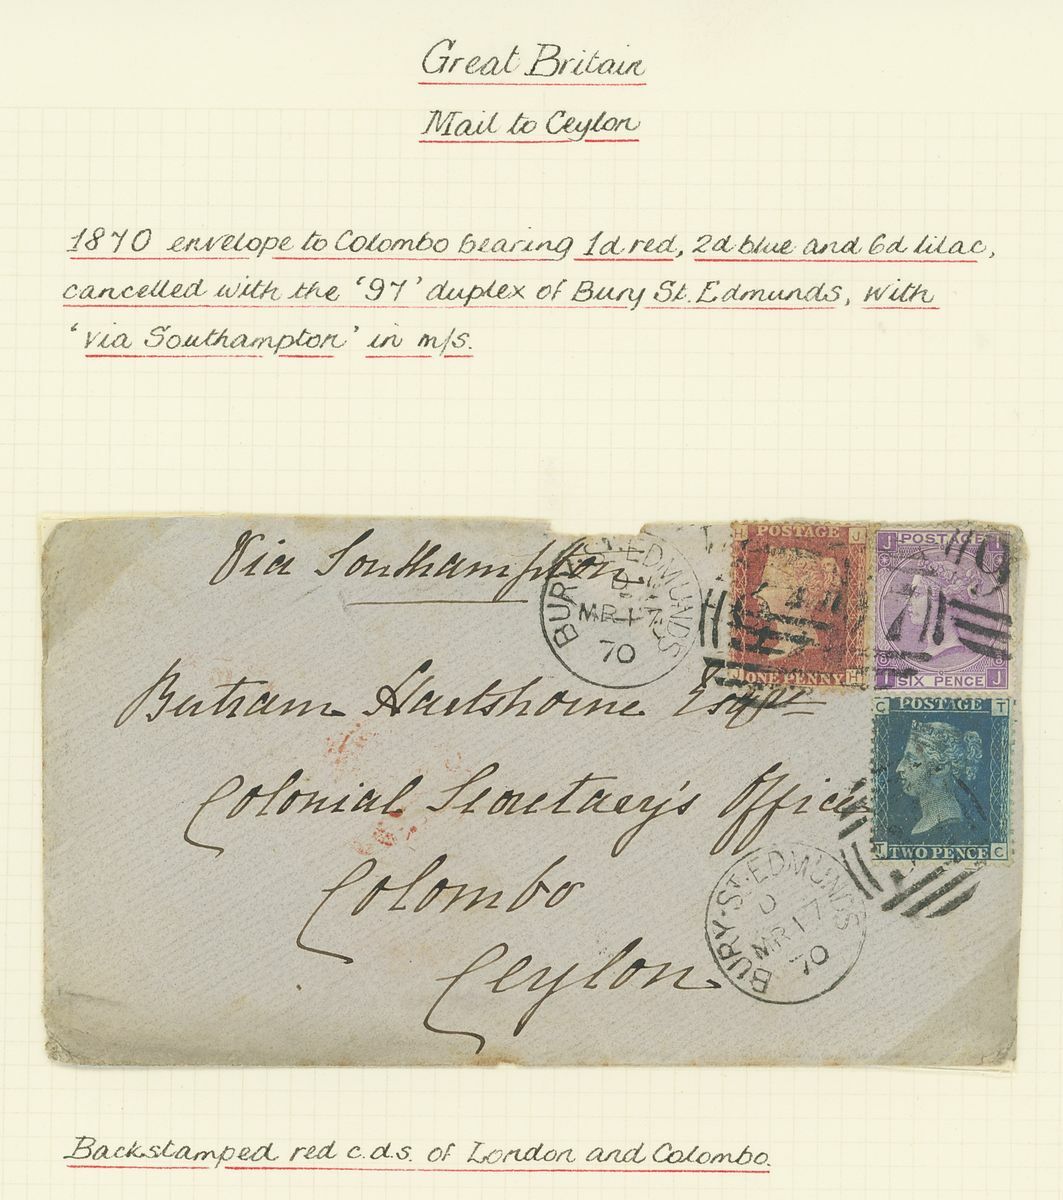 Great Britain
Mail to Ceylon
1870 envelope to Colombo bearing 1d red, 2d blue and 6d lilac,
cancelled with the '97' duplex of Bury St. Edmunds, with
'via Southampton' in m/s.
Via Southampton
BURY·ST·EDMUNDS
D
MR 17
70
H POSTAGE J
J ONE PENNY H
J POSTAGE I
8 8
I SIX PENCE J
Bertram Hartshorne Esqre
C POSTAGE T
T TWO PENCE C
Colonial Secretary's Office
Colombo
Ceylon
BURY·ST·EDMUNDS
D
MR 17
70
Backstamped red c.d.s. of London and Colombo.